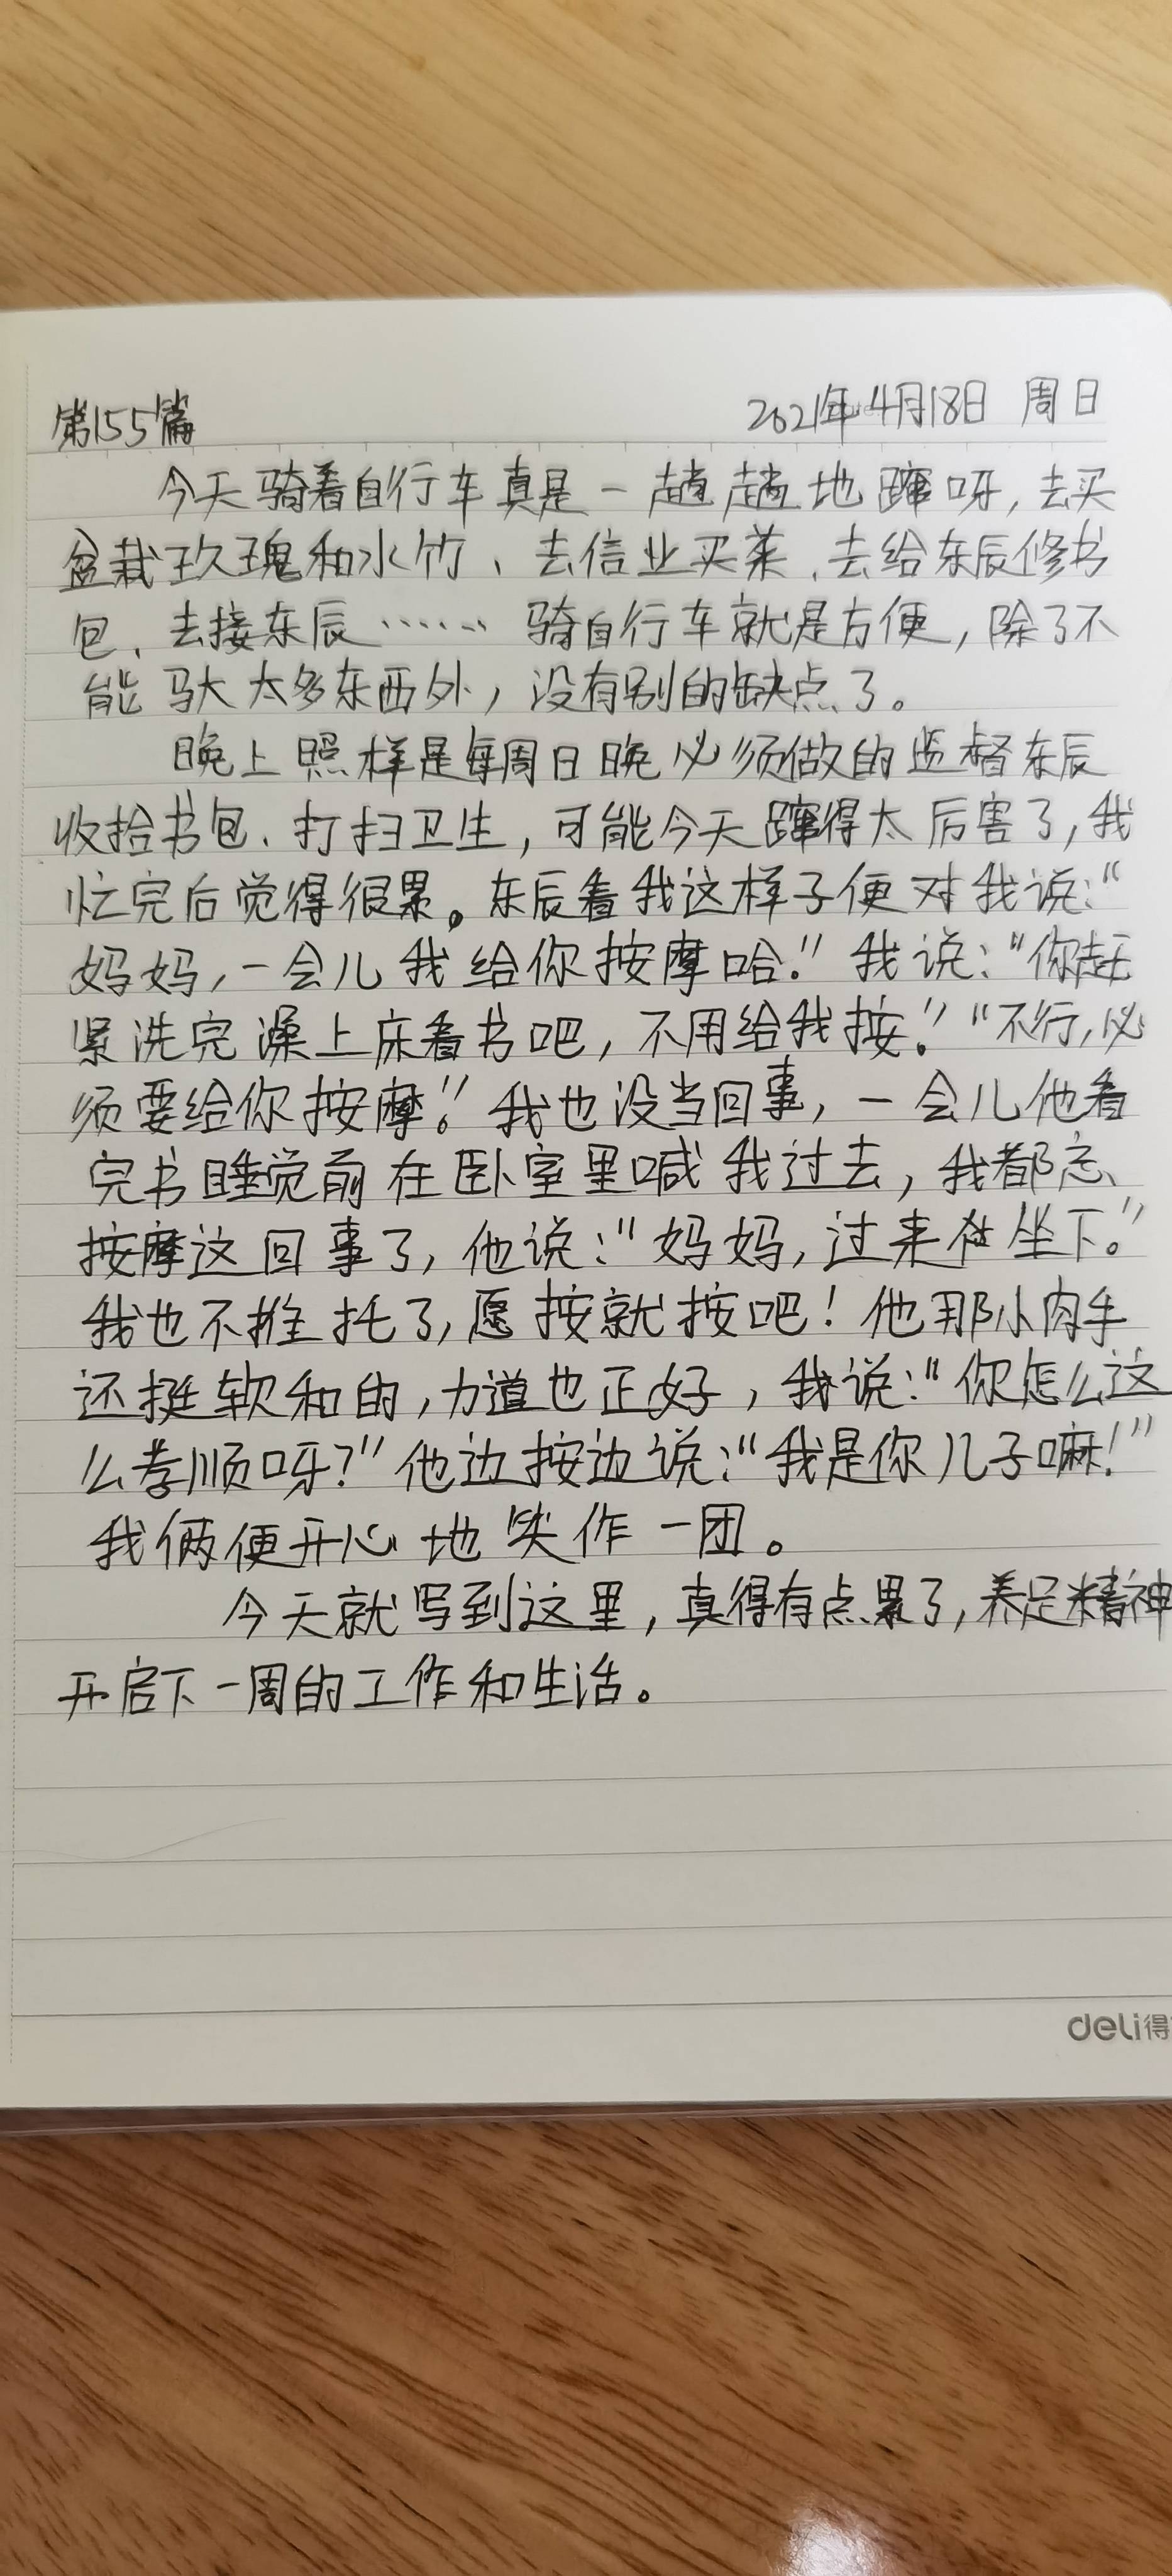 第155篇 2021年4月18日 周日
今天骑着自行车真是一趟趟地蹿呀，去买
盆栽玫瑰和水竹、去信业买菜、去给东辰修书
包、去接东辰…… 骑自行车就是方便，除了不
能驮太多东西外，没有别的缺点了。
晚上照样是每周日晚必须做的监督东辰
收拾书包、打扫卫生，可能今天蹿得太厉害了，我
忙完后觉得很累。东辰看我这样子便对我说：“
妈妈，一会儿我给你按摩哈。”我说：“你赶
紧洗完澡上床看书吧，不用给我按。”“不行，必
须要给你按摩。”我也没当回事，一会儿他看
完书睡觉前在卧室里喊我过去，我都忘
按摩这回事了，他说：“妈妈，过来 坐下。”
我也不推托了，愿按就按吧！他那小肉手
还挺软和的，力道也正好，我说：“你怎么这
么孝顺呀？”他边按边说：“我是你儿子嘛！”
我俩便开心地笑作一团。
今天就写到这里，真得有点累了，养足精神
开启下一周的工作和生活。
deli得